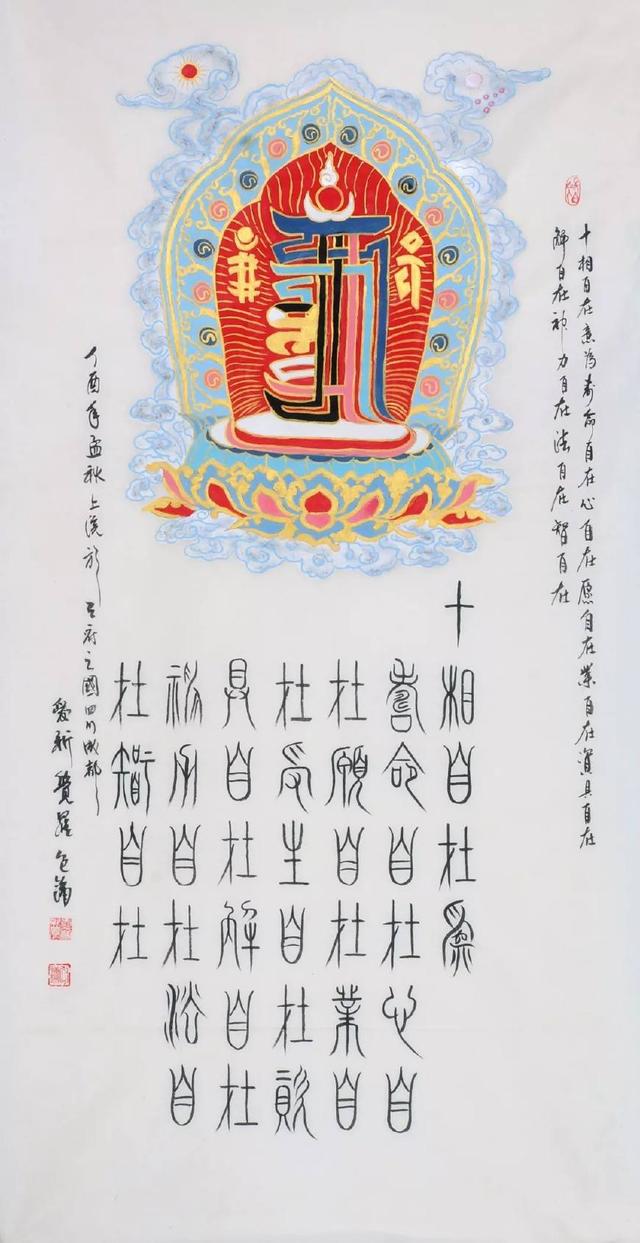 十相自在意为寿命自在心自在愿自在業自在資具自在
解自在神力自在法自在智自在
十相自在為
壽命自在心自
在願自在業自
在受生自在資
具自在解自在
神力自在法自
在智自在
丁酉年孟秋上浣於天府之國四川成都
愛新覺羅